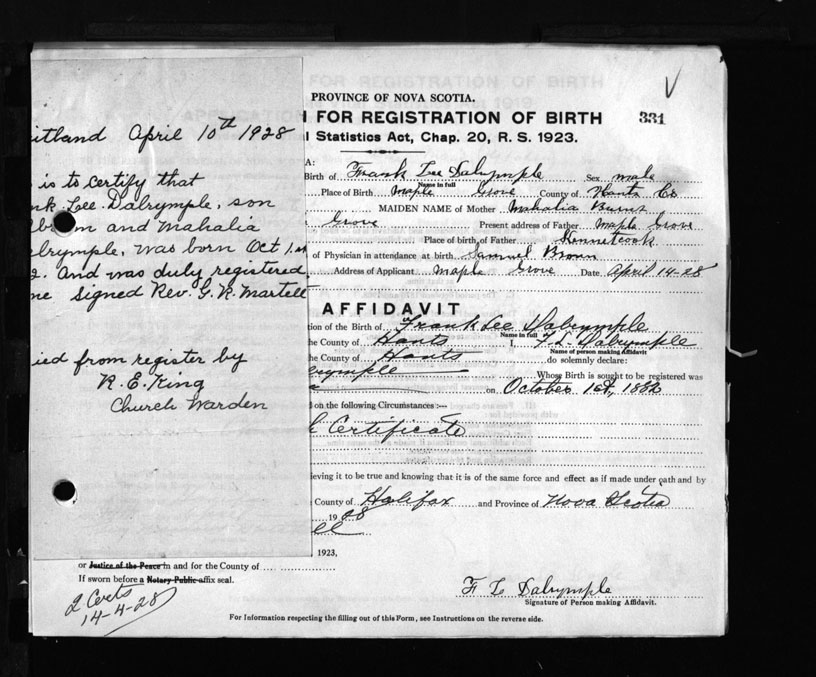 PROVINCE OF NOVA SCOTIA.
FOR REGISTRATION OF BIRTH 331
Statistics Act, Chap. 20, R. S. 1923.
Birth of Frank Lee Dalrymple Sex male
Name in full
Place of Birth Maple Grove County of Hants Co
MAIDEN NAME of Mother Mahalia Burns
Grove Present address of Father Maple Grove
Place of birth of Father Kennetcook
of Physician in attendance at birth Samuel Brown
Address of Applicant Maple Grove Date April 14-28
AFFIDAVIT
tion of the Birth of Frank Lee Dalrymple
Name in full
the County of Hants I, F. L. Dalrymple
Name of person making Affidavit
the County of Hants do solemnly declare:
rymple Whose Birth is sought to be registered was
on October 1st,
on the following Circumstances:—
Certificate
ieving it to be true and knowing that it is of the same force and effect as if made under oath and by
County of Halifax and Province of Nova Scotia
19
1923,
or Justice of the Peace in and for the County of
If sworn before a Notary Public affix seal.
F L Dalrymple
Signature of Person making Affidavit.
For Information respecting the filling out of this Form, see Instructions on the reverse side.
2 Certs
14-4-28
itland April 10th 1928
is to certify that
nk Lee Dalrymple, son
and Mahalia
alrymple, was born Oct 1st
2. And was duly registered
me Signed Rev. G. R. Martell
ied from register by
R. E. King
Church Warden